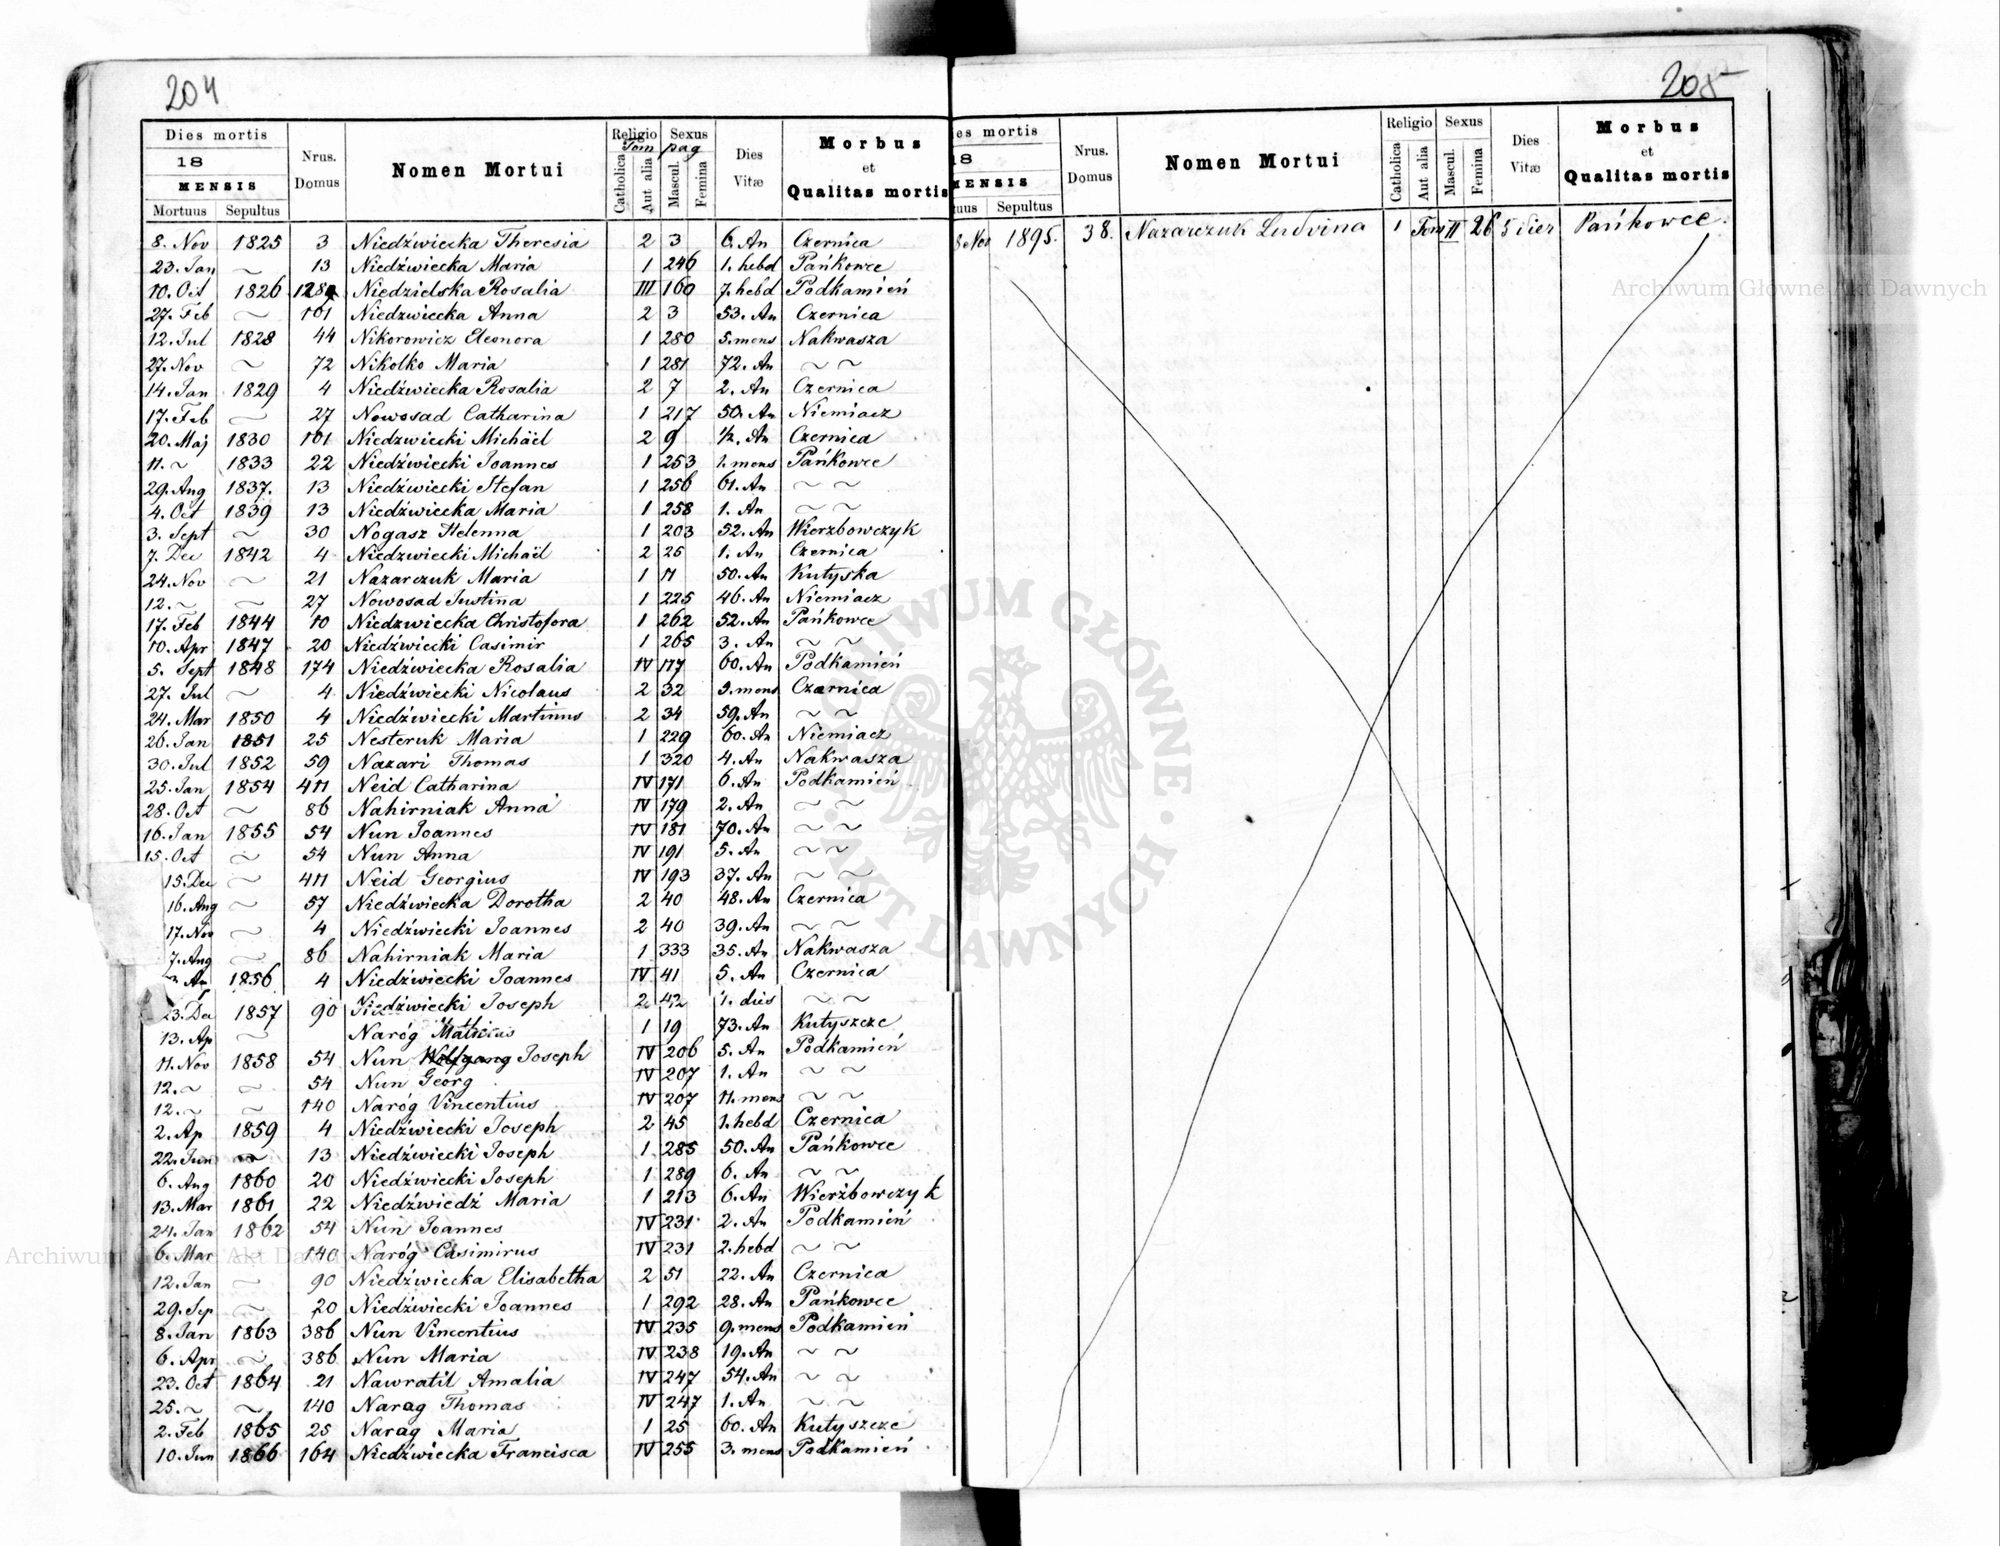 204
Dies mortis Nrus. Domus Nomen Mortui Religio Sexus Dies Vitæ Morbus et Qualitas mortis
18 Tom pag
MENSIS Catholica Aut alia Mascul. Femina
Mortuus Sepultus
8. Nov 1825 3 Niedźwiecka Theresia 2 3 6. An Czernica
23. Jan ~ 13 Niedźwiecka Maria 1 246 1. hebd Pańkowce
10. Oct 1826 128 Niedzielska Rosalia III 160 7. hebd Podkamień
27. Feb ~ 101 Niedzwiecka Anna 2 3 53. An Czernica
12. Jul 1828 44 Nikorowicz Eleonora 1 280 5. mens Nakwasza
27. Nov ~ 72 Nikolko Maria 1 281 72. An ~ ~
14. Jan 1829 4 Niedźwiecka Rosalia 2 7 2. An Czernica
17. Feb ~ 27 Nowosad Catharina 1 217 50. An Niemiacz
20. Maj 1830 101 Niedzwiecki Michäel 2 9 1/2. An Czernica
11. ~ 1833 22 Niedźwiecki Joannes 1 253 1. mens Pańkowce
29. Aug 1837. 13 Niedźwiecki Stefan 1 256 61. An ~ ~
4. Oct 1839 13 Niedźwiecka Maria 1 258 1. An ~ ~
3. Sept ~ 30 Nogasz Helenna 1 203 52. An Wierzbowczyk
7. Dec 1842 4 Niedzwiecki Michäel 2 25 1. An Czernica
24. Nov ~ 21 Nazarczuk Maria 1 11 50. An Kutyska
12. ~ ~ 27 Nowosad Justina 1 225 46. An Niemiacz
17. Feb 1844 10 Niedzwiecka Christofora 1 262 52. An Pańkowce
10. Apr 1847 20 Niedźwiecki Casimir 1 265 3. An ~ ~
5. Sept 1848 174 Niedźwiecka Rosalia IV 117 60. An Podkamień
27. Jul ~ 4 Niedźwiecki Nicolaus 2 32 9. mens Czarnica
24. Mar 1850 4 Niedźwiecki Martinus 2 34 59. An ~ ~
26. Jan 1851 25 Nesteruk Maria 1 229 60. An Niemiacz
30. Jul 1852 59 Nazari Thomas 1 320 4. An Nakwasza
25. Jan 1854 411 Neid Catharina IV 171 6. An Podkamień
28. Oct ~ 86 Nahirniak Anna IV 179 2. An ~ ~
16. Jan 1855 54 Nun Joannes IV 181 70. An ~ ~
15. Oct ~ 54 Nun Anna IV 191 5. An ~ ~
15. Dec ~ 411 Neid Georgius IV 193 37. An ~ ~
16. Aug ~ 57 Niedźwiecka Dorotha 2 40 48. An Czernica
17. Nov ~ 4 Niedźwiecki Joannes 2 40 39. An ~ ~
7. Aug ~ 86 Nahirniak Maria 1 333 35. An Nakwasza
1856 4 Niedźwiecki Joannes IV 41 5. An Czernica
23. Dec 1857 90 Niedźwiecki Joseph 2 42 1. dies ~ ~
13. Ap ~ Naróg Matheus 1 19 73. An Kutyszcze
11. Nov 1858 54 Nun Wolfgang Joseph IV 206 5. An Podkamień
12. ~ ~ 54 Nun Georg IV 207 1. An ~ ~
12. ~ ~ 140 Naróg Vincentius IV 207 11. mens ~ ~
2. Ap 1859 4 Niedźwiecki Joseph 2 45 1. hebd Czernica
22. Jun ~ 13 Niedźwiecki Joseph 1 285 50. An Pańkowce
6. Aug 1860 20 Niedźwiecki Joseph 1 289 6. An ~ ~
13. Mar 1861 22 Niedźwiedź Maria 1 213 6. An Wierżbowczyk
24. Jan 1862 54 Nun Joannes IV 231 2. An Podkamień
6. Mar ~ 140 Naróg Casimirus IV 231 2. hebd ~ ~
12. Jan ~ 90 Niedźwiecka Elisabetha 2 51 22. An Czernica
29. Sep ~ 20 Niedźwiecki Joannes 1 292 28. An Pańkowce
8. Jan 1863 386 Nun Vincentius IV 235 9. mens Podkamień
6. Apr ~ 386 Nun Maria IV 238 19. An ~ ~
23. Oct 1864 21 Nawratil Amalia IV 247 54. An ~ ~
25. ~ ~ 140 Narag Thomas IV 247 1. An ~ ~
2. Feb 1865 25 Narag Maria 1 25 60. An Kutyszcze
10. Jun 1866 164 Niedźwiecka Francisca IV 255 3. mens Podkamień
205
es mortis Nrus. Domus Nomen Mortui Religio Sexus Dies Vitæ Morbus et Qualitas mortis
18
MENSIS Catholica Aut alia Mascul. Femina
tuus Sepultus
8 Nov 1895. 38. Nazarczuk Ludvina 1 Tom II 26 5 dier Pańkowce.
Archiwum Główne Akt Dawnych
ARCHIWUM GŁÓWNE · AKT DAWNYCH ·
Archiwum Główne Akt Dawnych